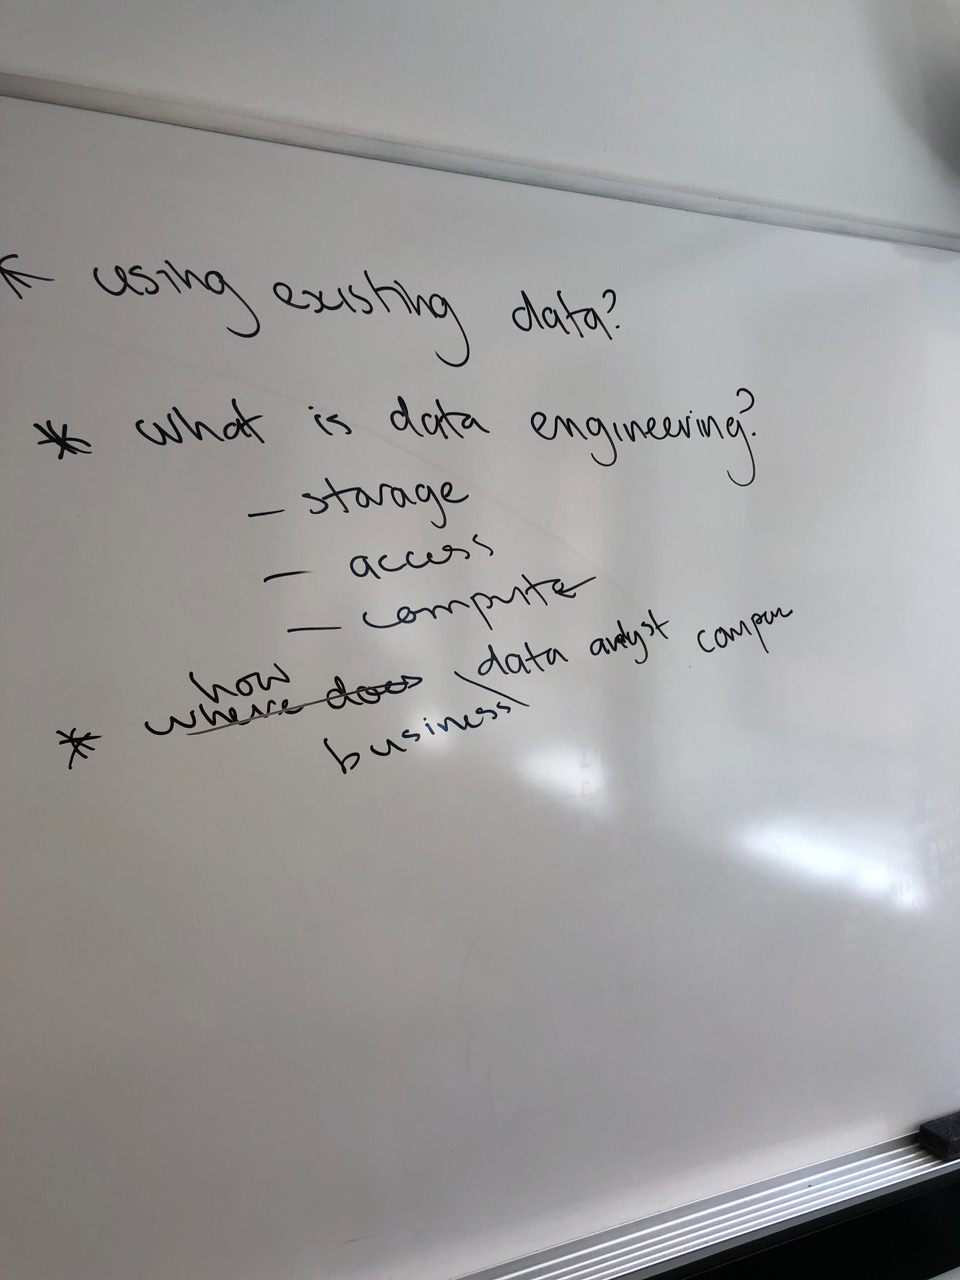 * using existing data?
* what is data engineering?
- storage
- access
- compute
how
* where does \ data analyst
business